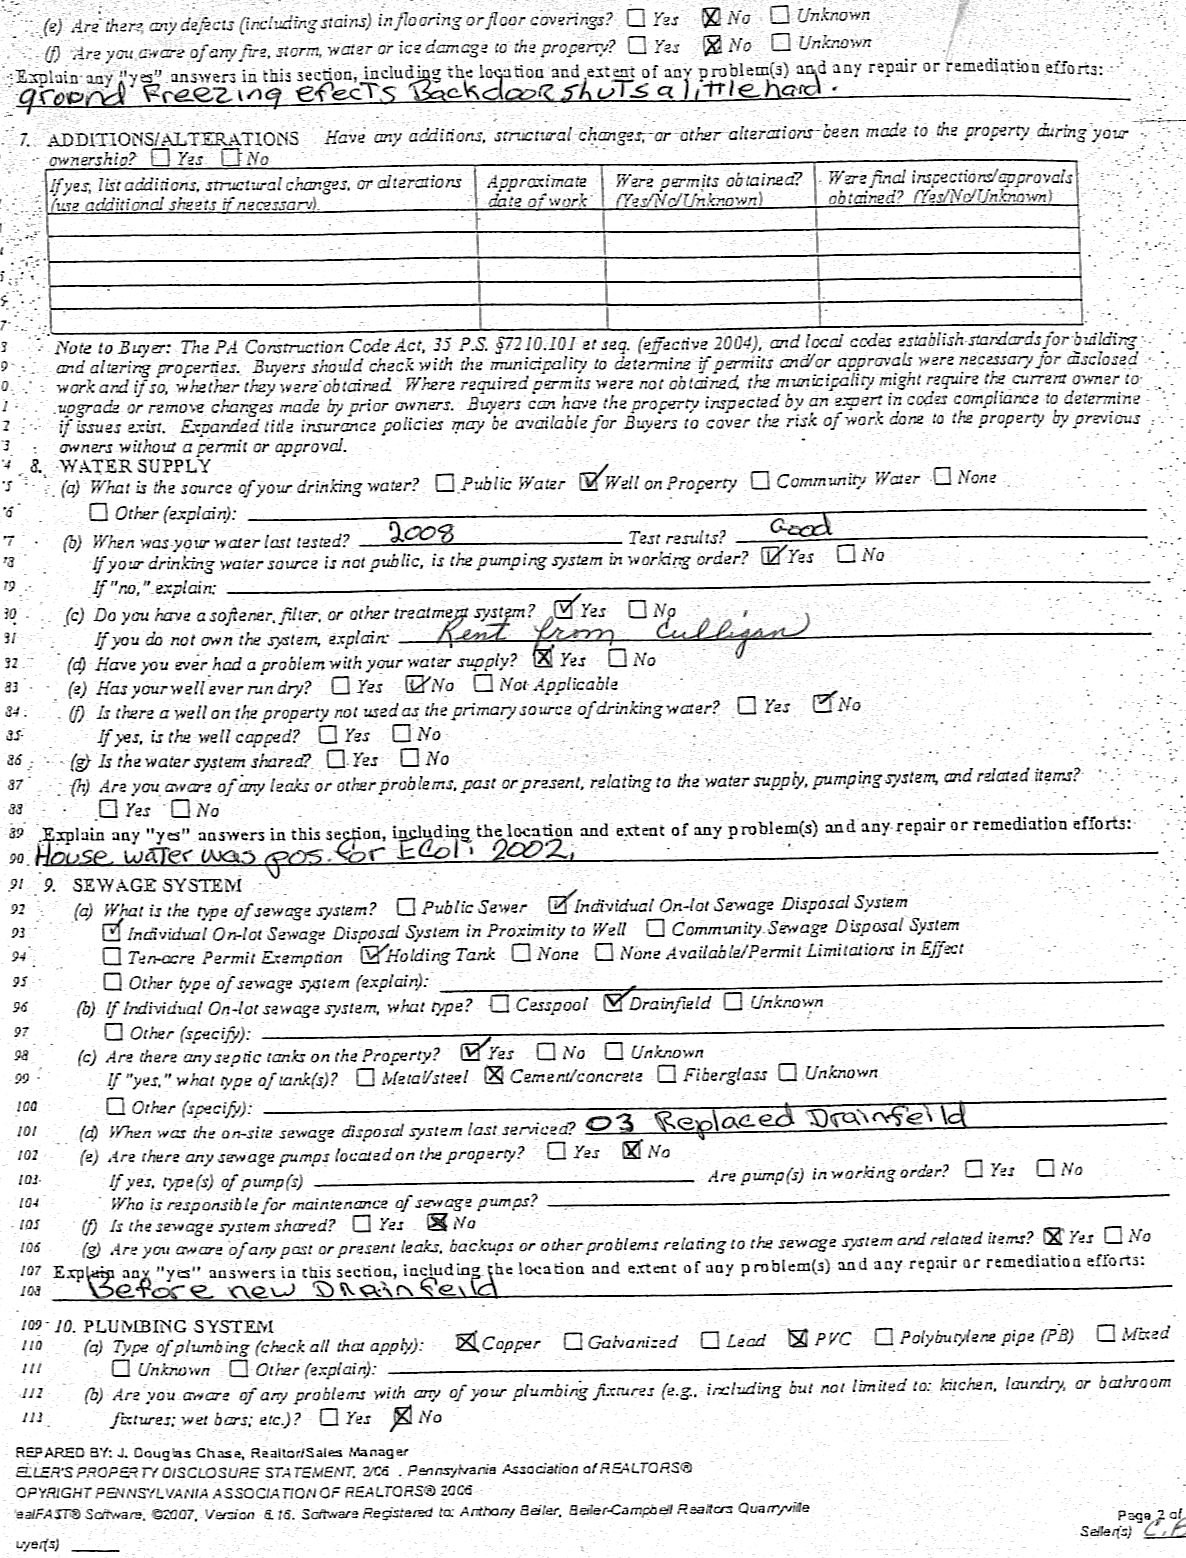 (e) Are there any defects (including stains) in flooring or floor coverings? ☐ Yes ☒ No ☐ Unknown
(f) Are you aware of any fire, storm, water or ice damage to the property? ☐ Yes ☒ No ☐ Unknown
Explain any "yes" answers in this section, including the location and extent of any problem(s) and any repair or remediation efforts:
ground Freezing efects Backdoor shuts a little hard.
7. ADDITIONS/ALTERATIONS Have any additions, structural changes, or other alterations been made to the property during your
ownership? ☐ Yes ☐ No
If yes, list additions, structural changes, or alterations (use additional sheets if necessary). Approximate date of work Were permits obtained? (Yes/No/Unknown) Were final inspections/approvals obtained? (Yes/No/Unknown)
5
6
7
3 Note to Buyer: The PA Construction Code Act, 35 P.S. §7210.101 et seq. (effective 2004), and local codes establish standards for building
9 and altering properties. Buyers should check with the municipality to determine if permits and/or approvals were necessary for disclosed
0 work and if so, whether they were obtained. Where required permits were not obtained, the municipality might require the current owner to
1 upgrade or remove changes made by prior owners. Buyers can have the property inspected by an expert in codes compliance to determine
2 if issues exist. Expanded title insurance policies may be available for Buyers to cover the risk of work done to the property by previous
3 owners without a permit or approval.
4 8. WATER SUPPLY
5 (a) What is the source of your drinking water? ☐ Public Water ☑ Well on Property ☐ Community Water ☐ None
6 ☐ Other (explain):
77 (b) When was your water last tested? 2008 Test results? Good
78 If your drinking water source is not public, is the pumping system in working order? ☑ Yes ☐ No
79 If "no," explain:
30 (c) Do you have a softener, filter, or other treatment system? ☑ Yes ☐ No
31 If you do not own the system, explain: Rent from Culligan
32 (d) Have you ever had a problem with your water supply? ☒ Yes ☐ No
83 (e) Has your well ever run dry? ☐ Yes ☑ No ☐ Not Applicable
84 (f) Is there a well on the property not used as the primary source of drinking water? ☐ Yes ☑ No
85 If yes, is the well capped? ☐ Yes ☐ No
86 (g) Is the water system shared? ☐ Yes ☐ No
87 (h) Are you aware of any leaks or other problems, past or present, relating to the water supply, pumping system, and related items?
88 ☐ Yes ☐ No
89 Explain any "yes" answers in this section, including the location and extent of any problem(s) and any repair or remediation efforts:
90 House water was pos. for EColi 2002,
91 9. SEWAGE SYSTEM
92 (a) What is the type of sewage system? ☐ Public Sewer ☑ Individual On-lot Sewage Disposal System
93 ☑ Individual On-lot Sewage Disposal System in Proximity to Well ☐ Community Sewage Disposal System
94 ☐ Ten-acre Permit Exemption ☑ Holding Tank ☐ None ☐ None Available/Permit Limitations in Effect
95 ☐ Other type of sewage system (explain):
96 (b) If Individual On-lot sewage system, what type? ☐ Cesspool ☑ Drainfield ☐ Unknown
97 ☐ Other (specify):
98 (c) Are there any septic tanks on the Property? ☑ Yes ☐ No ☐ Unknown
99 If "yes," what type of tank(s)? ☐ Metal/steel ☒ Cement/concrete ☐ Fiberglass ☐ Unknown
100 ☐ Other (specify):
101 (d) When was the on-site sewage disposal system last serviced? 03 Replaced Drainfeild
102 (e) Are there any sewage pumps located on the property? ☐ Yes ☒ No
103 If yes, type(s) of pump(s) Are pump(s) in working order? ☐ Yes ☐ No
104 Who is responsible for maintenance of sewage pumps?
105 (f) Is the sewage system shared? ☐ Yes ☒ No
106 (g) Are you aware of any past or present leaks, backups or other problems relating to the sewage system and related items? ☒ Yes ☐ No
107 Explain any "yes" answers in this section, including the location and extent of any problem(s) and any repair or remediation efforts:
108 Before new Drainfeild
109 10. PLUMBING SYSTEM
110 (a) Type of plumbing (check all that apply): ☒ Copper ☐ Galvanized ☐ Lead ☒ PVC ☐ Polybutylene pipe (PB) ☐ Mixed
111 ☐ Unknown ☐ Other (explain):
112 (b) Are you aware of any problems with any of your plumbing fixtures (e.g., including but not limited to: kitchen, laundry, or bathroom
113 fixtures; wet bars; etc.)? ☐ Yes ☒ No
REPARED BY: J. Douglas Chase, Realtor/Sales Manager
ELLER'S PROPERTY DISCLOSURE STATEMENT, 2/06 . Pennsylvania Association of REALTORS®
OPYRIGHT PENNSYLVANIA ASSOCIATION OF REALTORS® 2006
ealFAST® Software, ©2007, Version 6.16. Software Registered to: Anthony Beiler, Beiler-Campbell Realtors Quarryville
Page 2 of
Seller(s) C.B
uyer(s)